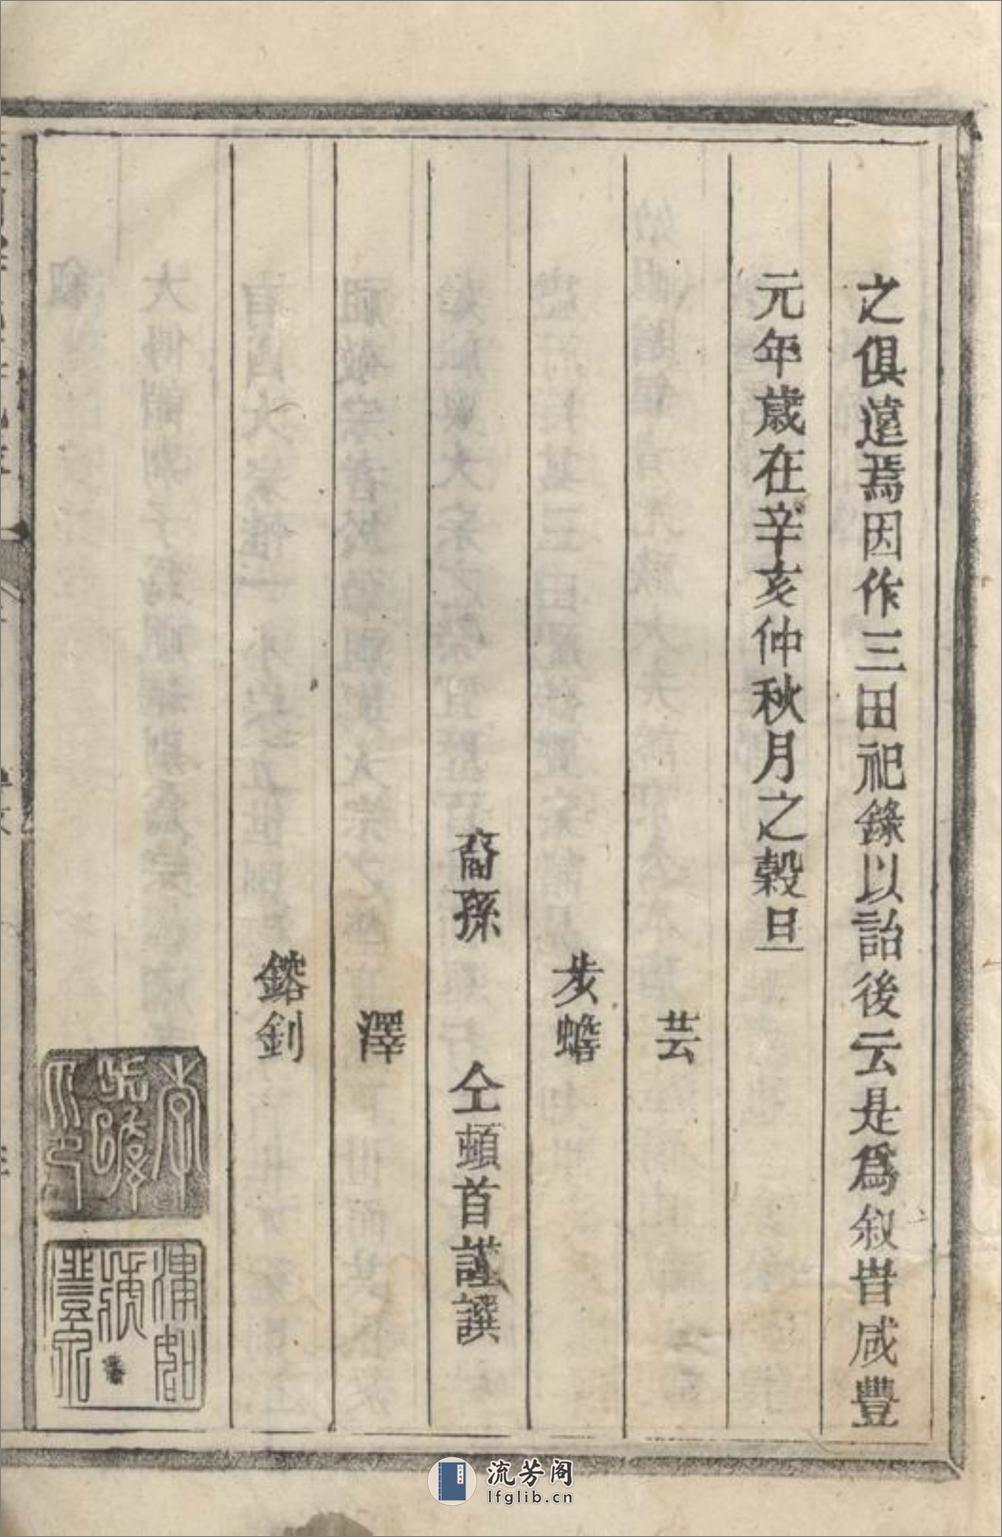 之俱遠焉因作三田祀錄以詒後云是為叙旹咸豐
元年歲在辛亥仲秋月之穀旦
芸
步蟾
裔孫 仝頓首謹譔
澤
鎔釗
李步蟾印
流芳阁
lfglib.cn